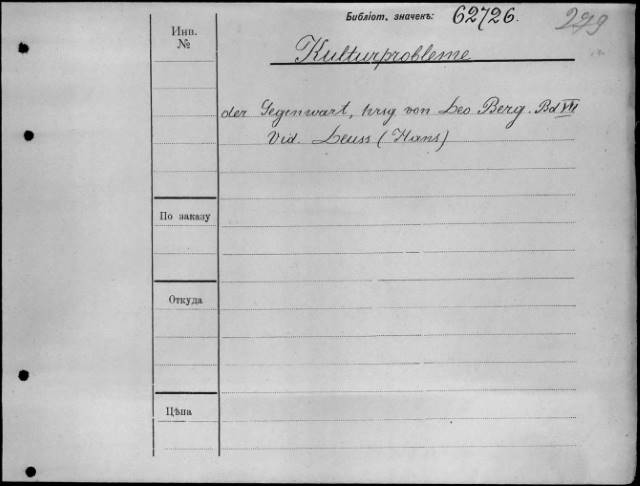 Библіот. значекъ: 62726. 279
Инв.
№
Kulturprobleme
der Gegenwart, hrsg von Leo Berg. Bd VII
Vid. Leuss (Hans)
По заказу
Откуда
Цѣна